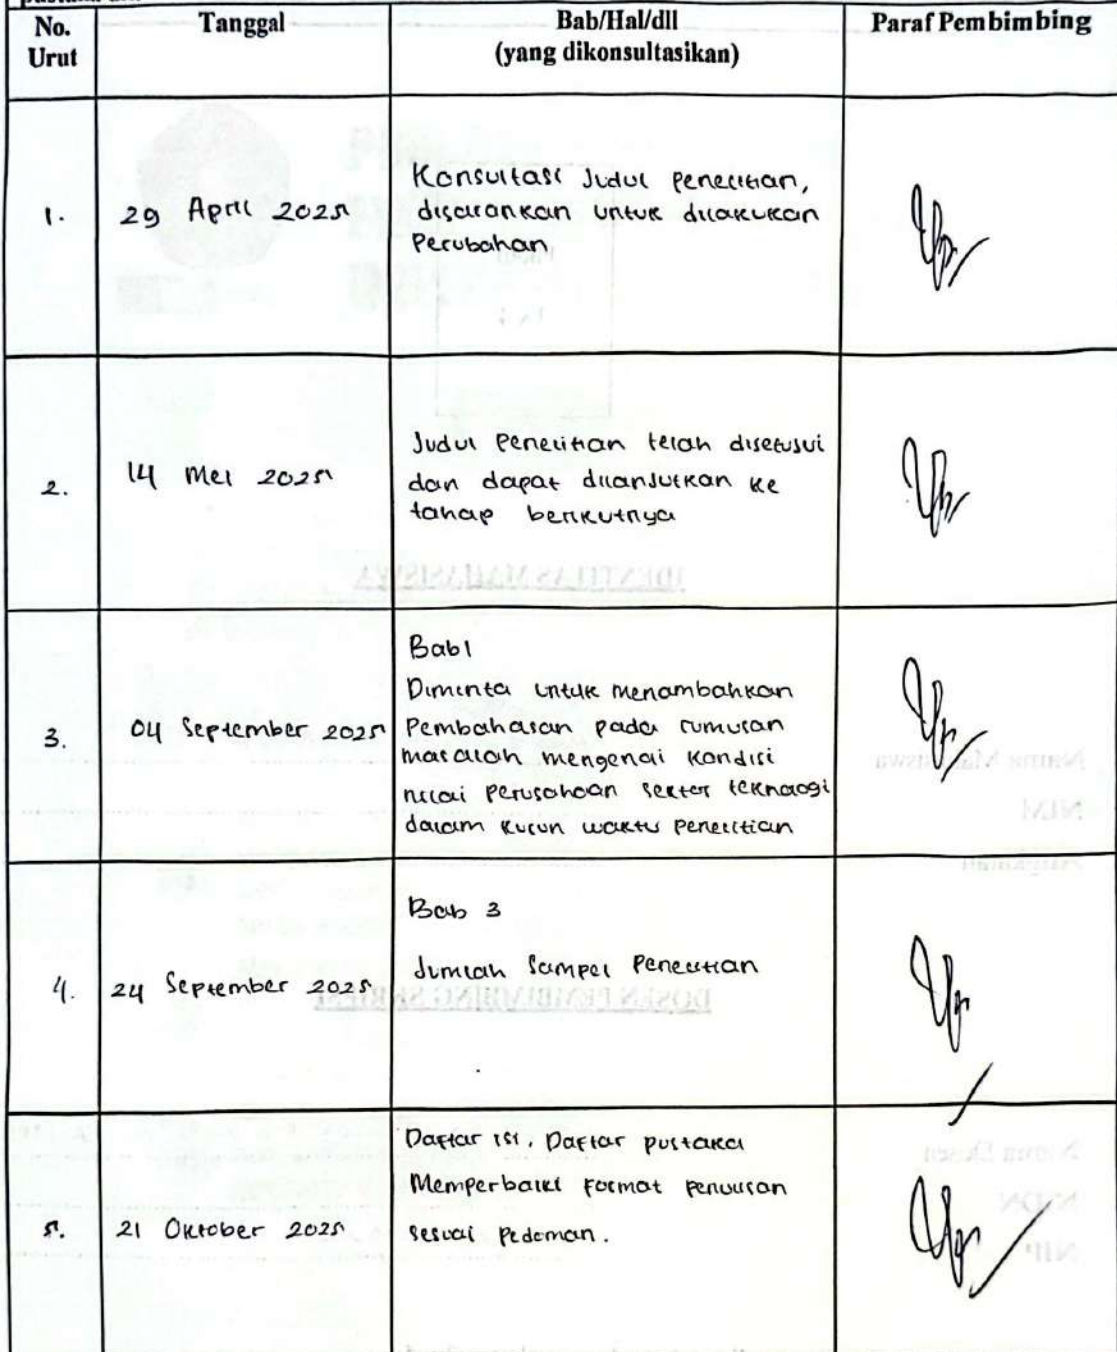 No. Urut
Tanggal
Bab/Hal/dll
(yang dikonsultasikan)
Paraf Pembimbing
1.
29 April 2025
Konsultasi Judul Penelitian,
disarankan untuk dilakukan
Perubahan
2.
14 Mei 2025
Judul Penelitian telah disetujui
dan dapat dilanjutkan ke
tahap berikutnya
3.
04 September 2025
Bab 1
Diminta untuk menambahkan
Pembahasan pada rumusan
masalah mengenai kondisi
nilai perusahaan sektor teknologi
dalam kurun waktu penelitian
4.
24 September 2025
Bab 3
Jumlah Sampel Penelitian
5.
21 Oktober 2025
Daftar isi, Daftar pustaka
Memperbaiki format penulisan
sesuai Pedoman.
IDENTITAS MAHASISWA
Nama Mahasiswa
NIM
Angkatan
DOSEN PEMBIMBING SKRIPSI
Nama Dosen
NIDN
NIP